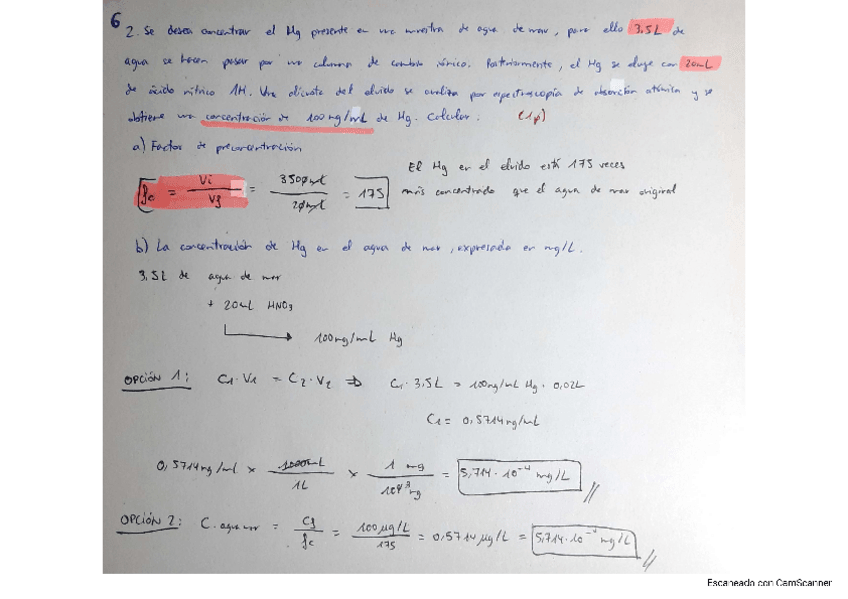 6
2. Se desea concentrar el Hg presente en una muestra de agua de mar, para ello 3.5L de
agua se hacen pasar por una columna de cambio iónico. Posteriormente, el Hg se eluye con 20mL
de ácido nítrico 1M. Una alícuota del eluido se analiza por espectroscopía de absorción atómica y se
obtiene una concentración de 100ng/mL de Hg. Calcular: (1p)
a) Factor de preconcentración
fc = Vi / Vf = 3500mL / 20mL = 175
El Hg en el eluido está 175 veces
más concentrado que el agua de mar original
b) La concentración de Hg en el agua de mar, expresada en mg/L.
3.5L de agua de mar
+ 20mL HNO3
100ng/mL Hg
OPCIÓN 1: C1·V1 = C2·V2 ⇒ C1·3,5L = 100ng/mL Hg · 0,02L
C1 = 0,5714ng/mL
0,5714ng/ml × 1000mL / 1L × 1 mg / ng = 5,714·10⁻⁴ mg/L
OPCIÓN 2: C.agua mar = Cf / fc = 100µg/L / 175 = 0,5714µg/L = 5,714·10⁻⁴ mg/L
Escaneado con CamScanner